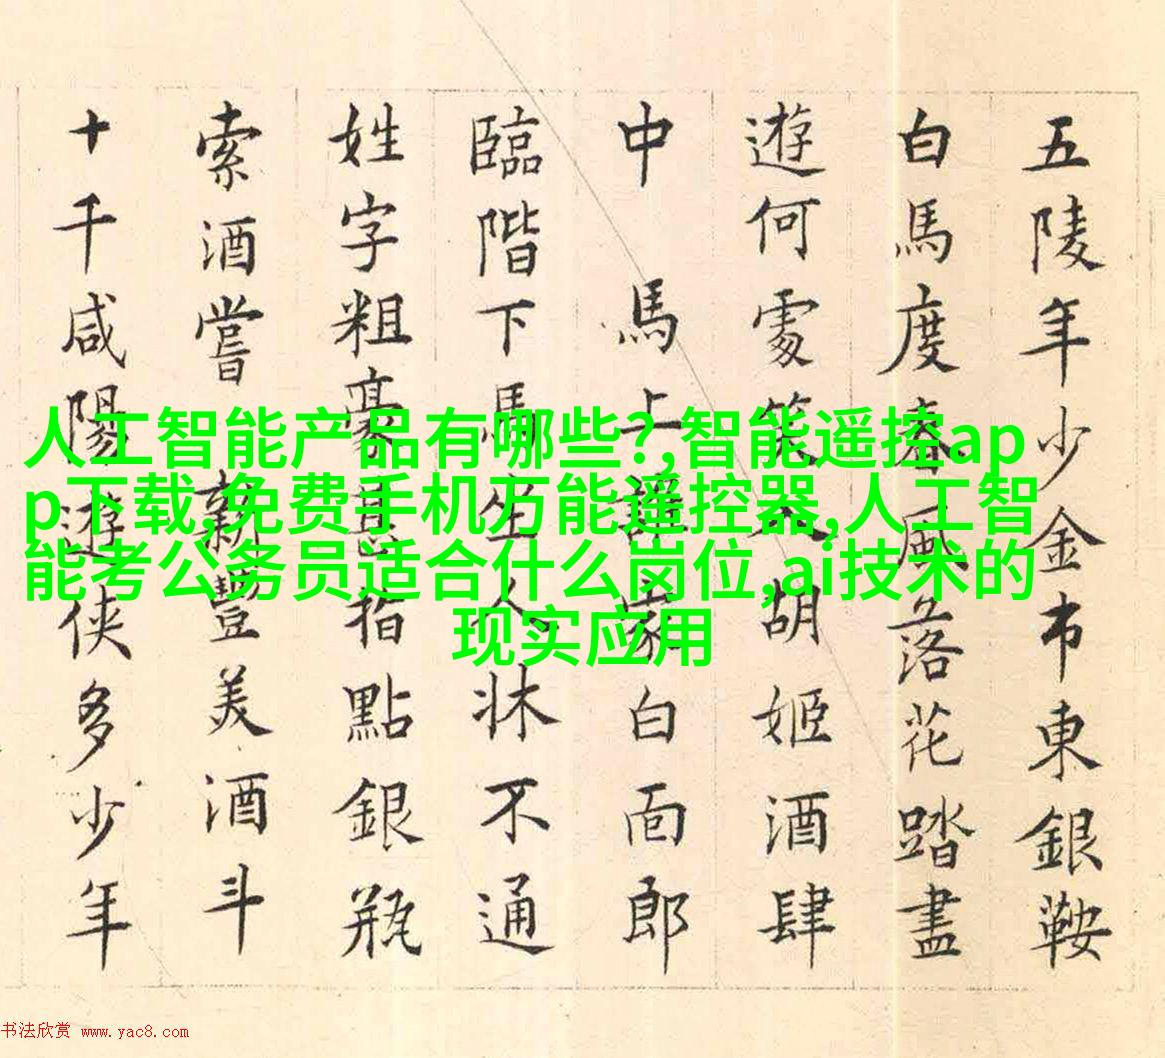 五陵年少金市東銀鞍
白馬度春風落花踏盡
遊何處笑入胡姬酒肆
中 馬上誰家白面郎
臨階下馬坐人牀不通
姓字粗豪甚指點銀瓶
索酒嘗 新豐美酒斗
十千咸陽遊俠多少年
人工智能产品有哪些?,智能遥控ap
p下载,免费手机万能遥控器,人工智
能考公务员适合什么岗位,ai技术的
现实应用
书法欣赏 www.yac8.com